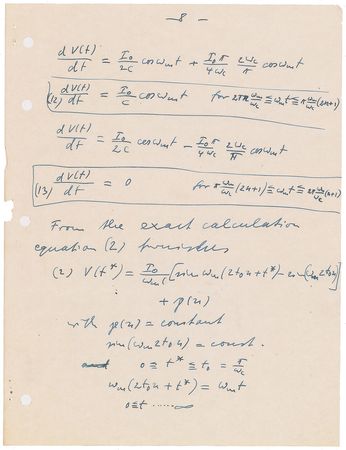 - 8 -
dV(t)/dt = I₀/2C cos ωₘt + I₀π/4ω_c 2ω_c/π cos ωₘt
(12) dV(t)/dt = I₀/C cos ωₘt for 2πn ωₘ/ω_c ≦ ωₘt ≦ π ωₘ/ω_c (2n+1)
dV(t)/dt = I₀/2C cos ωₘt - I₀π/4ω_c 2ω_c/π cos ωₘt
(13) dV(t)/dt = 0 for π ωₘ/ω_c (2n+1) ≦ ωₘt ≦ 2π ωₘ/ω_c (n+1)
From the exact calculation
equation (2) furnishes
(2) V(t*) = I₀/ωₘC [sin ωₘ(2t₀n + t*) - sin (ωₘ2t₀n)]
+ p(n)
with p(n) = constant
sin(ωₘ2t₀n) = const.
0 ≦ t* ≦ t₀ = π/ω_c
ωₘ(2t₀n + t*) = ωₘt
0≦t ······∞